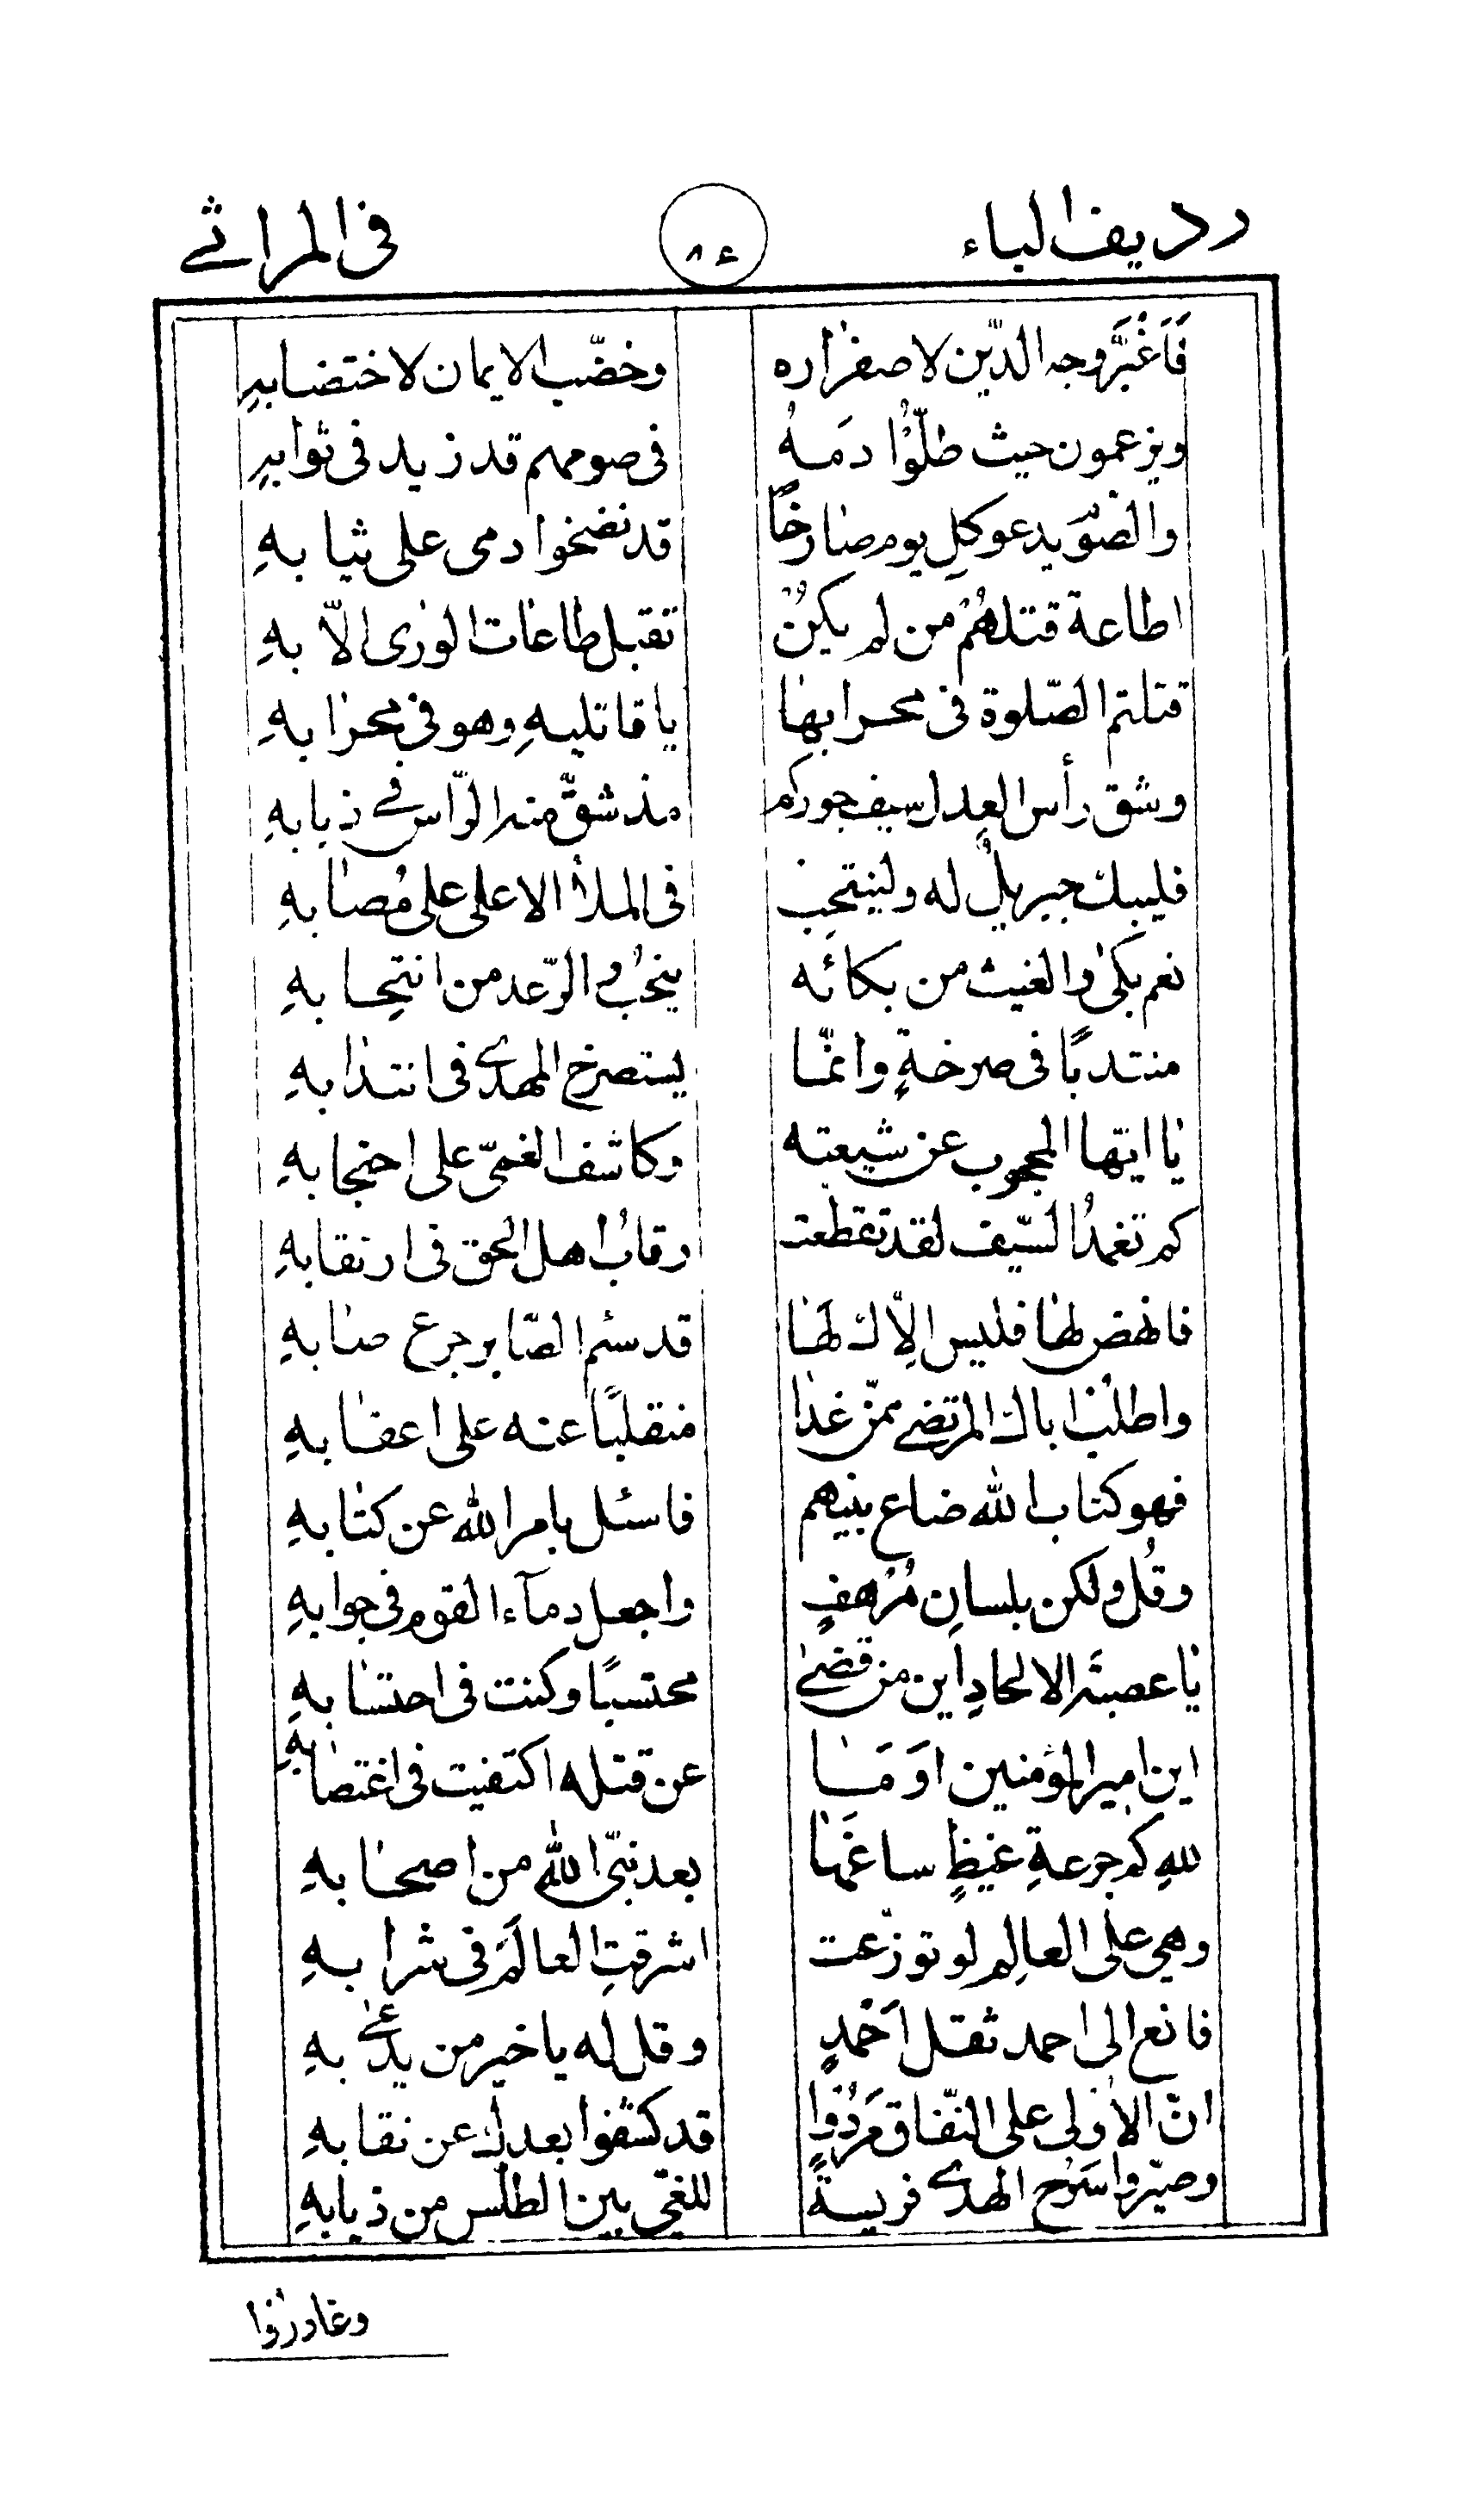 رديف الباء ٨٤ فى المراثے
فَاغْبَرَّ وجه الدّين لاصفراره وخضّب الايمان لاختضابهِ
ويزعمون حيث طلّوُا دمَهُ فى صومهم قد زيد فى ثوابهِ
والصّو يدعو كل يوم صارخًا قد نضخوا دمى على ثيابهِ
اطاعة قتلهُمُ من لم يكنْ تقبل طاعات الورى الاّ بهِ
قتلتم الصّلوة فى محرابها يا قاتليهِ وهو فى محرابهِ
وشق رأس العدل سيف جوركم مذ شقّ منه الرّأس فے ذبابهِ
فليبك جبريلُ له ولينتحب فى الملأ الاعلى على مُصابهِ
نعم بكىٰ والغيث من بكائه ينحبُ والرّعد من انتحابهِ
منتدبًا فى صرخةٍ وانّما يستصرخ المهدے فى انتدابهِ
يا ايّها المحجوب عن شيعته وكاشف الغمّى على احتجابهِ
كم تغمدُ السّيف لقد تقطعت رقابُ اهل الحق فى ارتقابهِ
فانهض لها فليس الاّك لها قد سئم الصّابر جرع صابهِ
واطلب اباك المرتضے ممّن غدا منقلبًا عنه على اعقابهِ
فهو كتاب الله ضاع بينهم فاسئل بامر الله عن كتابهِ
وقُل ولكن بلسانِ مُرهفٍ واجعل دمآء القوم فى جوابهِ
يا عصبةَ الالحادِ اين من قضىٰ محتسبًا وكنت فى احتسابهِ
اين امير المؤمنين اوَمَا عن قتله اكتفيت فى اغتصابهِ
للهِ كم جرعةِ غيظٍ ساغَها بعد نبىّ الله من اصحابهِ
وهى على العالِم لو توزّعت اشرقت العالَم فى شرابهِ
فانع الى احمد ثقل اَحْمدٍ وقل له يا خير من يدعےٰ بهِ
انّ الاُولى على النّفاق مَرَدُوا قد كشفوا بعدك عن نقابهِ
وصيّروا سَرْح الهدے فريسةً للغىّ بين الطلس من ذيابهِ
وغادروا